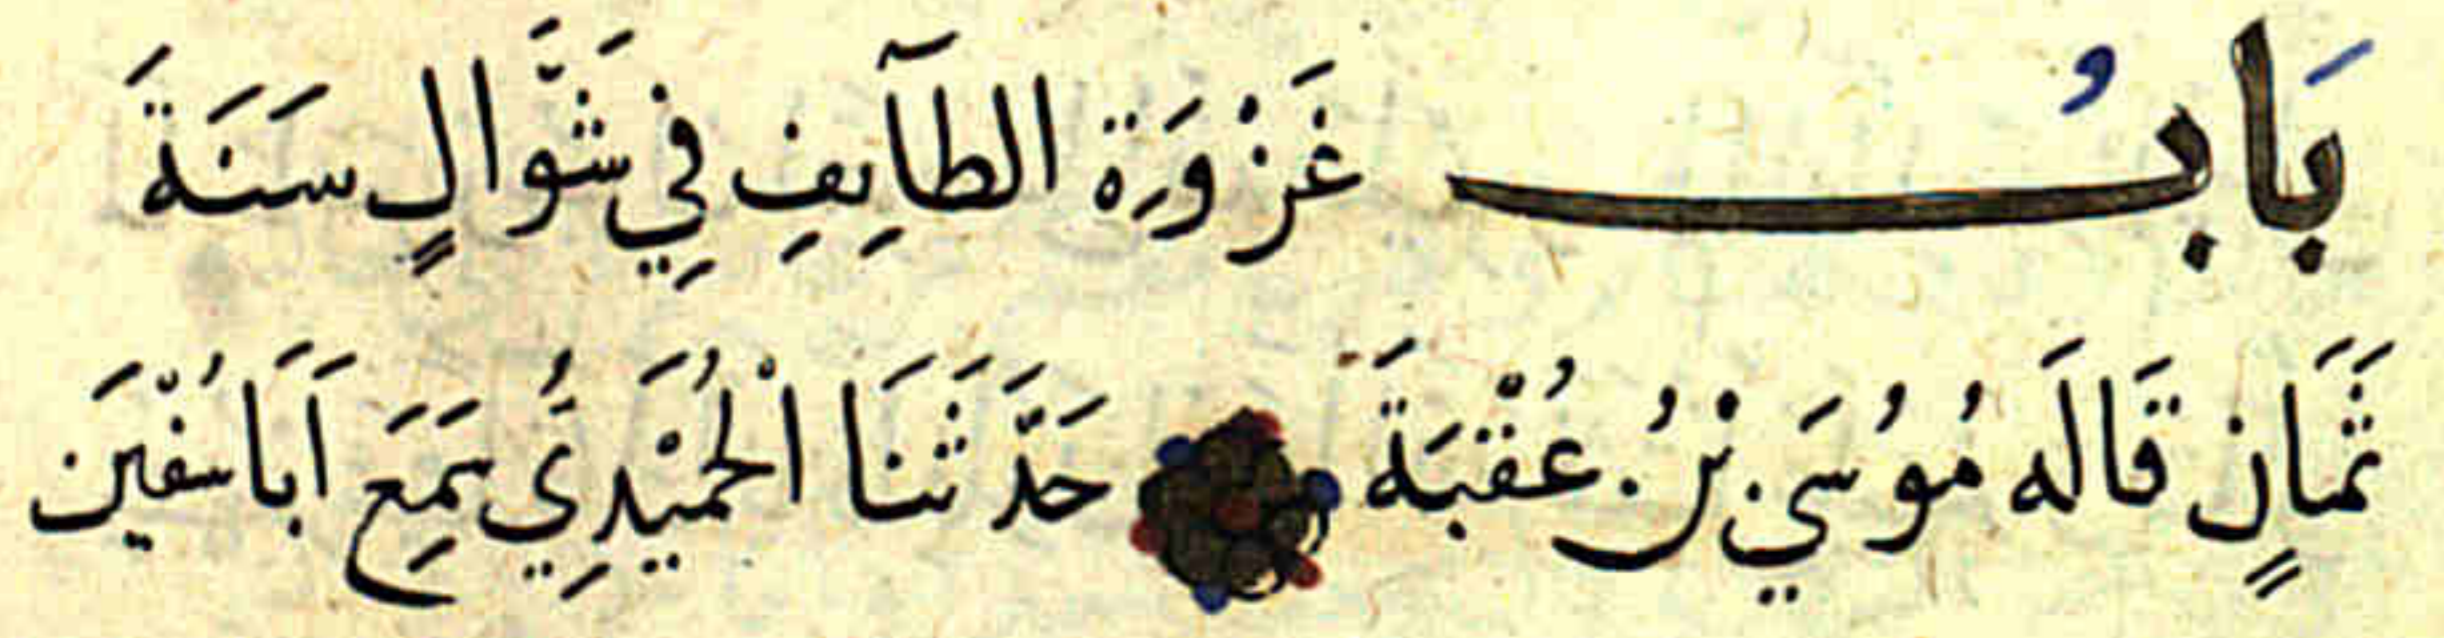 بَابُ غَزْوَةِ الطَّآيِفِ فِي شَوَّالٍ سَنَةَ
ثَمَانٍ قَالَه مُوسَي بْنُ عُقْبَةَ حَدَّثَنَا الْحُمَيْدِيُّ سَمِعَ اَبَا سُفْيٰنَ